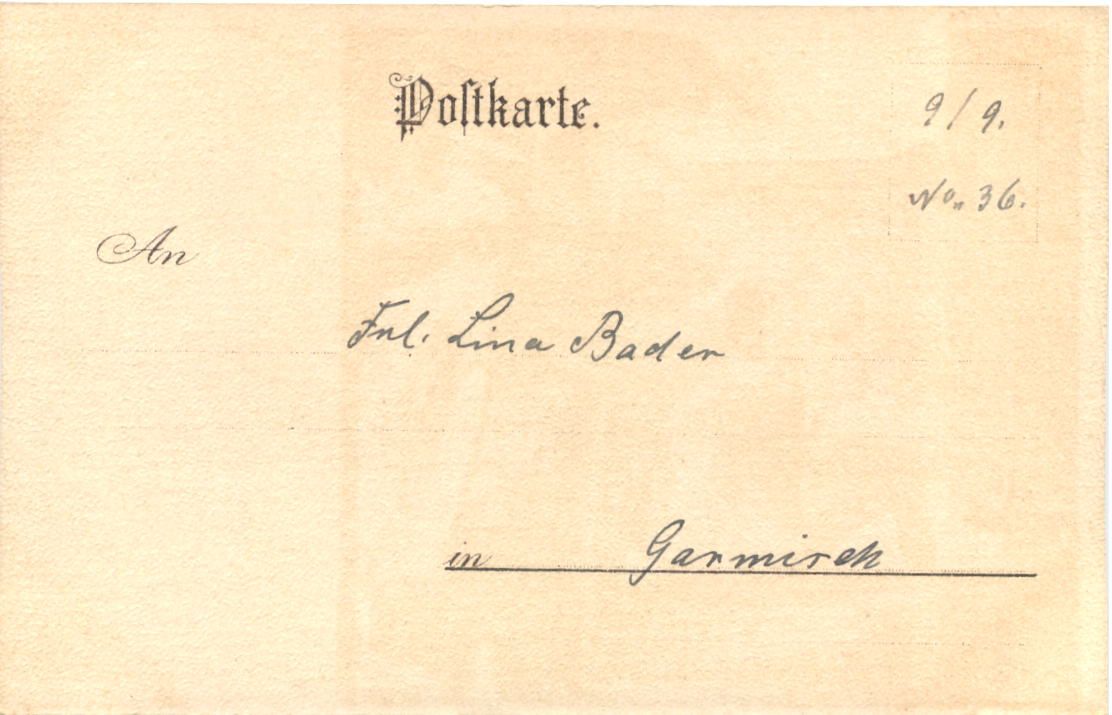 Postkarte.
9/9.
No. 36.
An
Frl. Lina Bader
in Garmisch